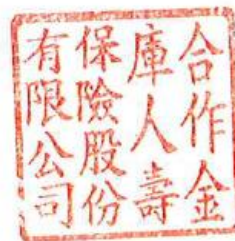 合作金
庫人壽
保險股份
有限公司